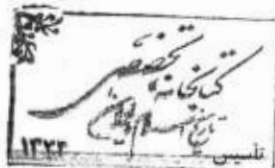 کتابخانه تخصصی
تاریخ اسلام و ایران
تأسیس ۱۳۲۲